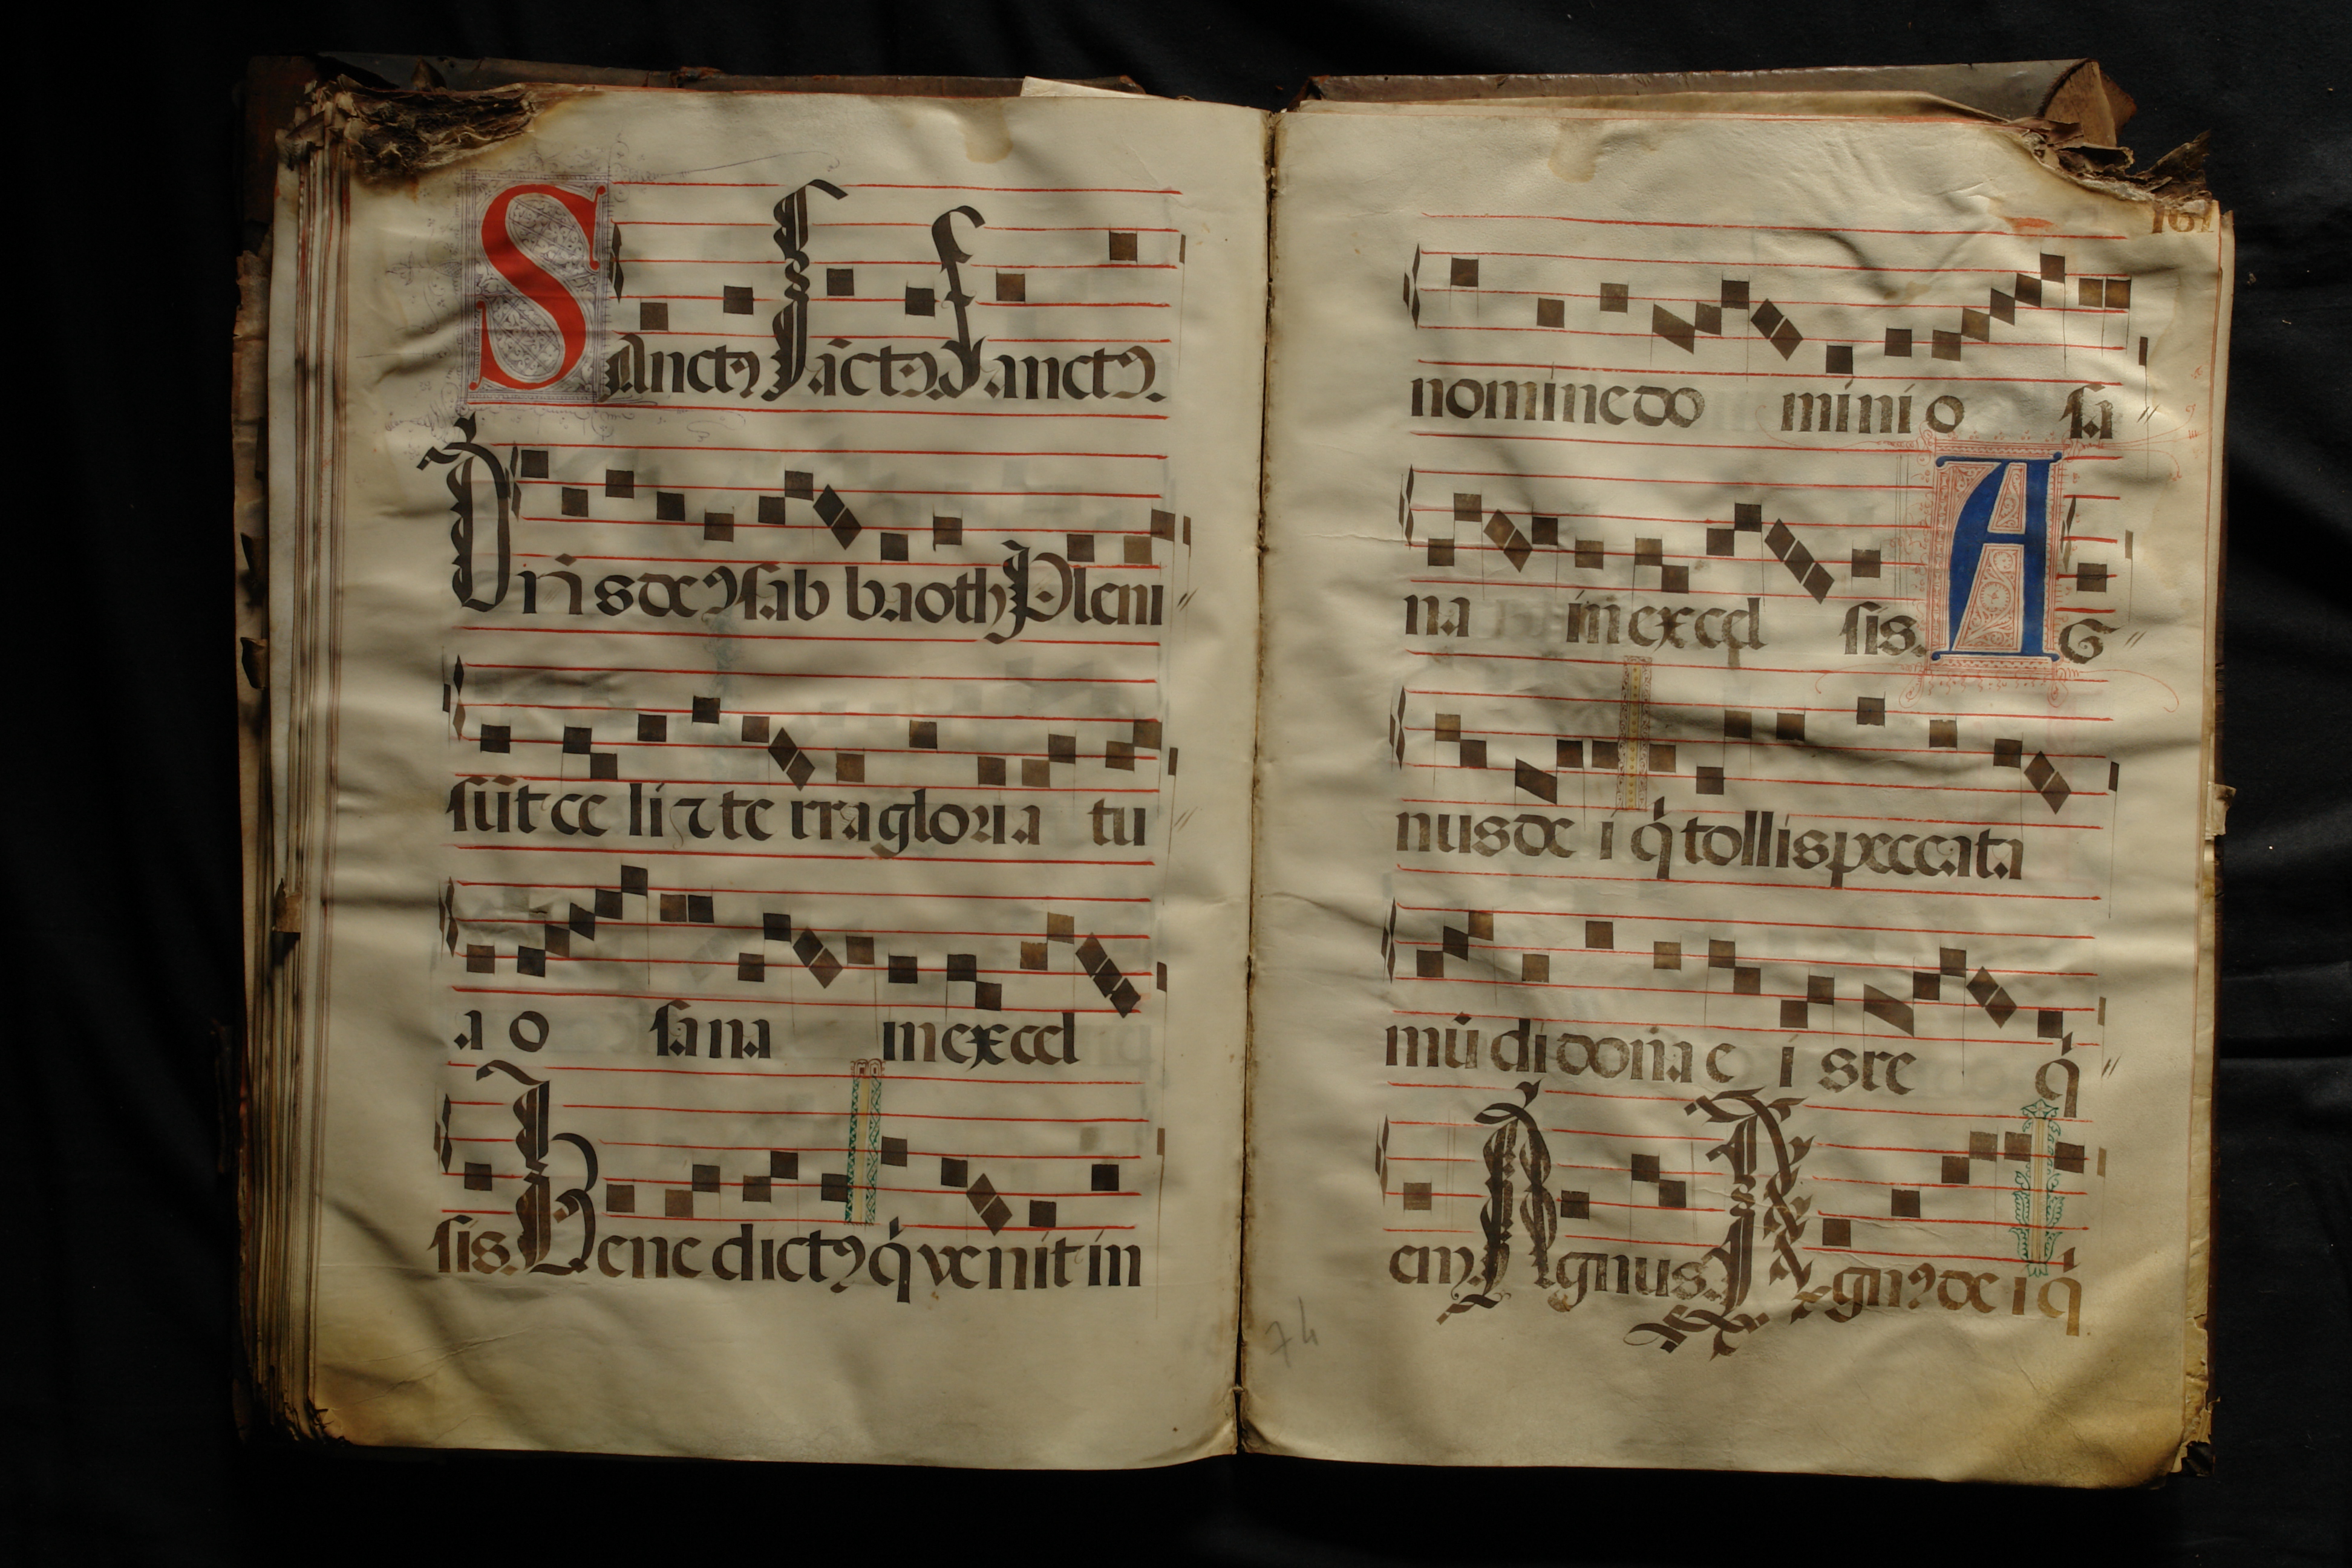 Sanctꝰ sāctꝰ Sanctꝰ.
Dn̄s deꝰ sab baoth Pleni
sūt ce li ⁊ te rra gloria tu
a o sana in excel
sis. Bene dictꝰ q̇ venit in
161
nomine do mini o sa
na in excel sis. A G
nus de i q̇ tollis peccata
mūdi dona e i s re q̇
em. Agnus. Agnꝰ de i q̇
74